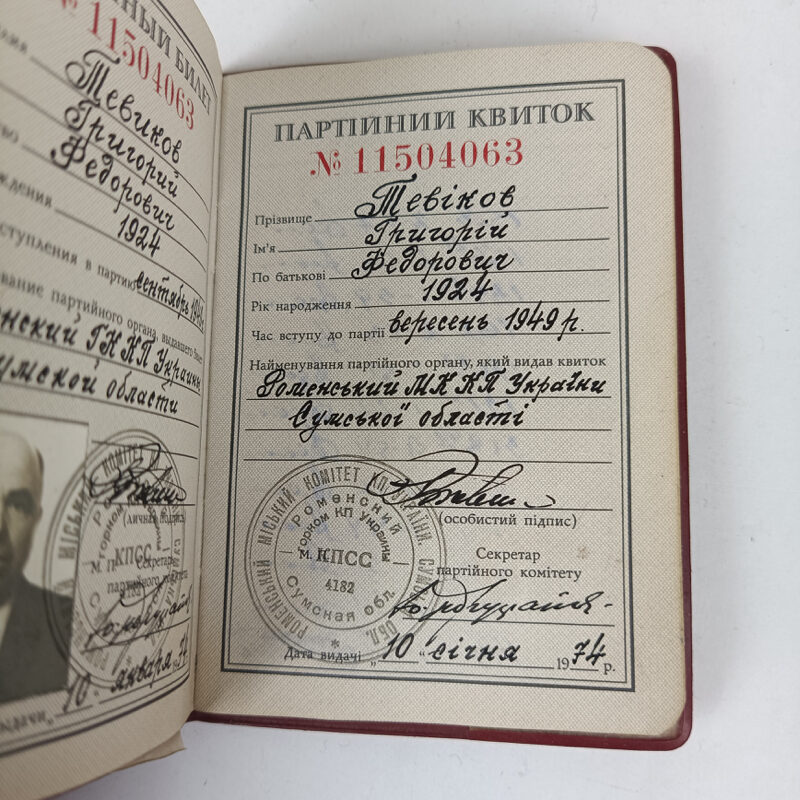 НЫЙ БИЛЕТ
№ 11504063
Тевиков
Григорий
Федорович
ждения 1924
ступления в партию сентябрь 1949
ование партийного органа, выдавшего билет
нский ГК КП Украины
Сумской области
(личная подпись)
М. П. Секретарь
партийного комитета
выдачи „10 января 74
ПАРТІЙНИЙ КВИТОК
№ 11504063
Прізвище Тевіков
Ім'я Григорій
По батькові Федорович
Рік народження 1924
Час вступу до партії вересень 1949 р.
Найменування партійного органу, який видав квиток
Роменський МК КП України
Сумської області
(особистий підпис)
РОМЕНСЬКИЙ МІСЬКИЙ КОМІТЕТ КП УКРАЇНИ. СУМСЬК. ОБЛ.
Роменский горком КП Украины
КПСС
4182
Сумская обл.
М.
Секретар
партійного комітету
Дата видачі „10“ січня 1974 р.